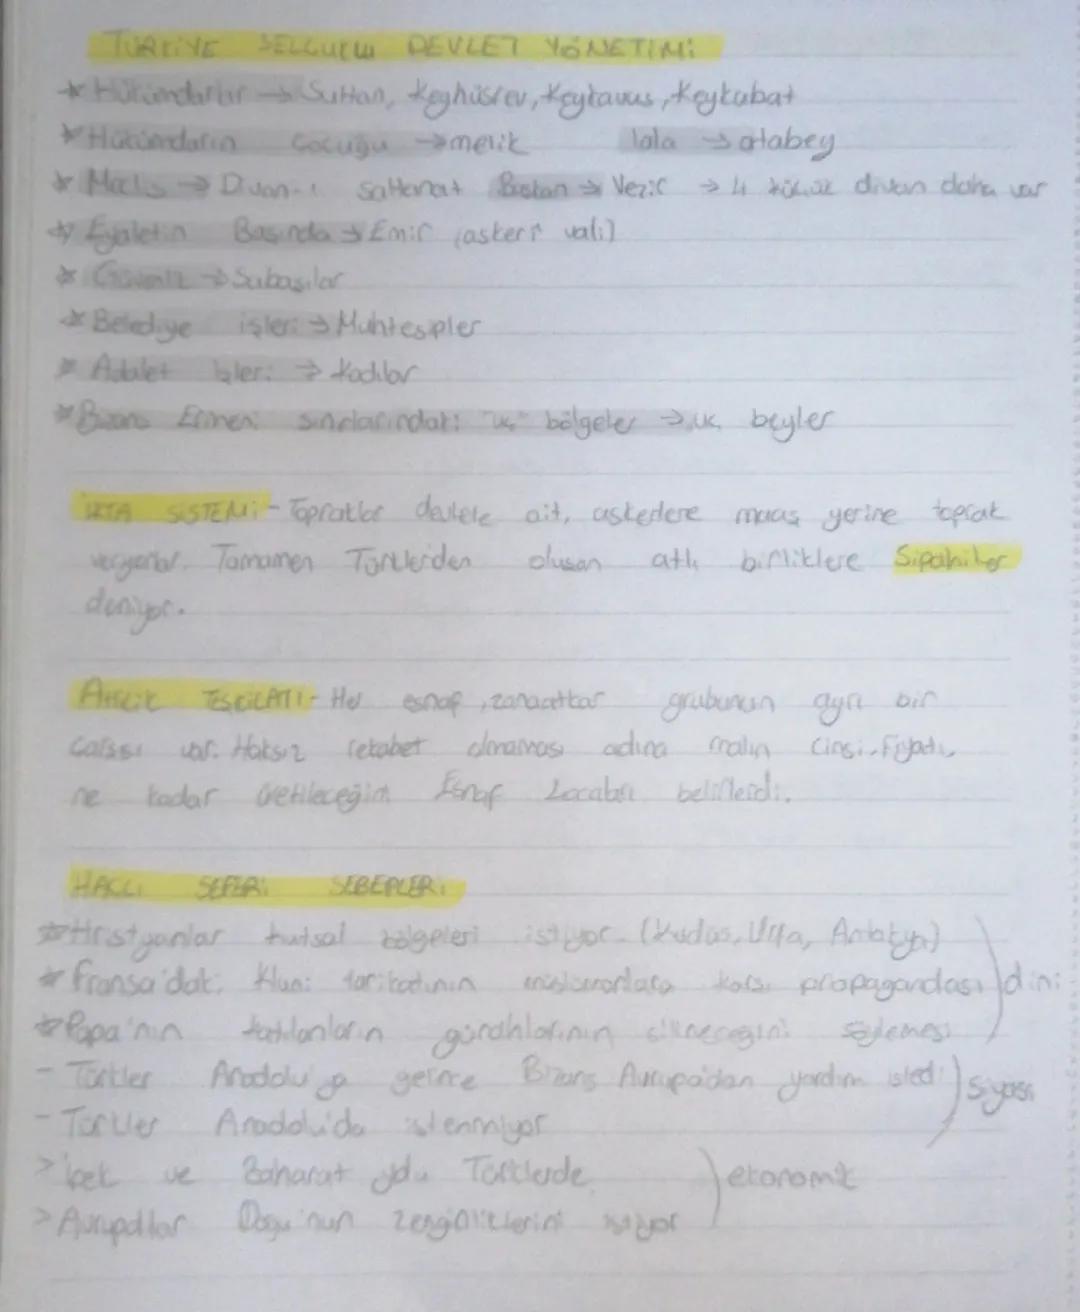 TÜRKİYE SELÇUKLU DEVLET YÖNETİMİ
* Hükümdarlar → Sultan, Keyhüsrev, Keykavus, Keykubat
* Hükümdarın Çocuğu → melik lala → atabey
* Meclis → Divan-ı saltanat Baştan → Vezir → 4 küçük divan daha var
* Eyaletin Başında → Emir (askeri vali)
* Güvenlik → Subaşılar
* Belediye işleri → Muhtesipler
* Adalet İşleri → Kadılar
* Bizans Ermeni sınırlarındaki "uç" bölgeler → uç beyler
İKTA SİSTEMİ - Topraklar devlete ait, askerlere maaş yerine toprak
veriyorlar. Tamamen Türklerden oluşan atlı birliklere Sipahiler
deniyor.
AHİLİK TEŞKİLATI - Her esnaf, zanaatkar grubunun ayrı bir
çarşısı var. Haksız rekabet olmaması adına malın cinsi, fiyatı,
ne kadar üretileceğini Esnaf Locaları belirlerdi.
HAÇLI SEFERİ SEBEPLERİ
* Hristyanlar kutsal bölgeleri istiyor. (Kudüs, Urfa, Antakya)
* Fransa'daki Kluni tarikatının müslümanlara karşı propagandası
* Papa'nın katılanların günahlarının silineceğini söylemesi
dini
- Türkler Anadolu'ya gelince Bizans Avrupa'dan yardım istedi
- Türkler Anadolu'da istenmiyor
siyasi
> İpek ve Baharat yolu Türklerde
> Avrupalılar Doğu'nun zenginliklerini istiyor
ekonomik